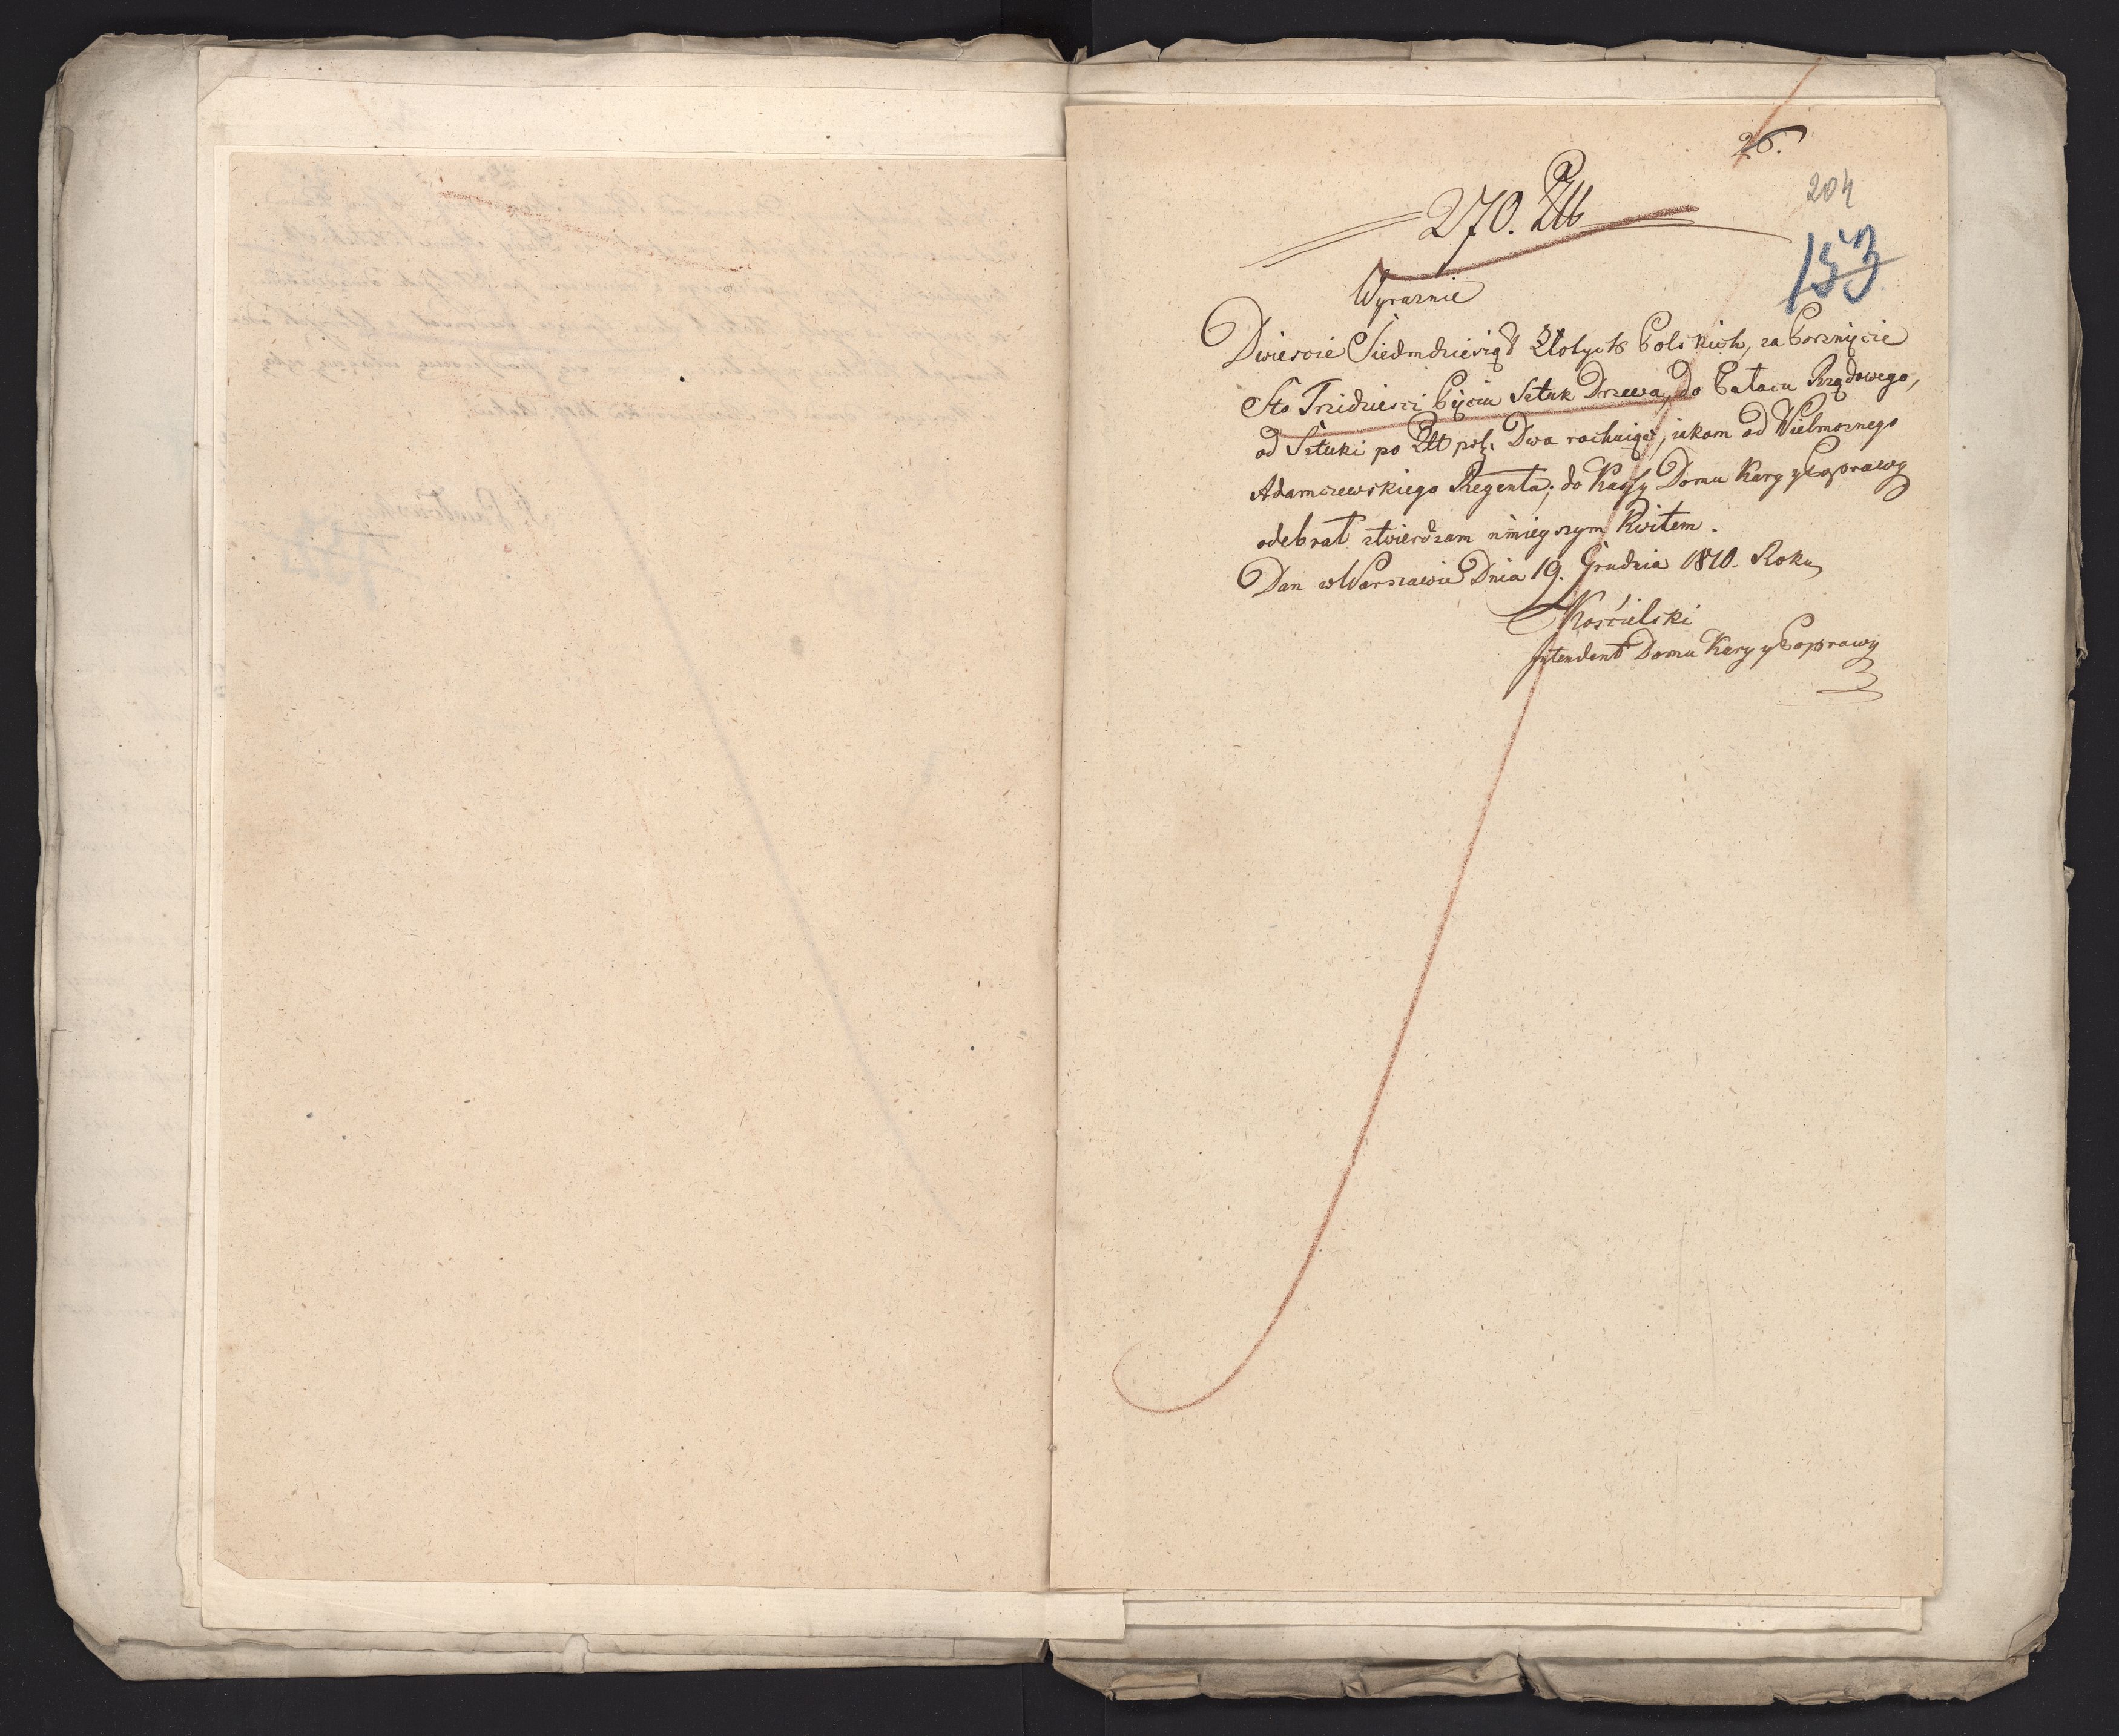 26.
204
270. Złł
153
Wyraznie
Dwiescie Siedmdziesiąt Złotych Polskich, za Porznięcie
Sto Trzidziesci Pięciu Sztuk Drzewa, do Pałacu Rządowego,
od Sztuki po Złł pol: Dwa rachuiąc, iakom od Wielmoznego
Adamczewskiego Regenta; do Kassy Domu Kary y Poprawy
odebrał ztwierdzam ninieyszym Kwitem.
Dan w Warszawie Dnia 19. Grudnia 1810. Roku
Kościelski
Intendent Domu Kary y Poprawy